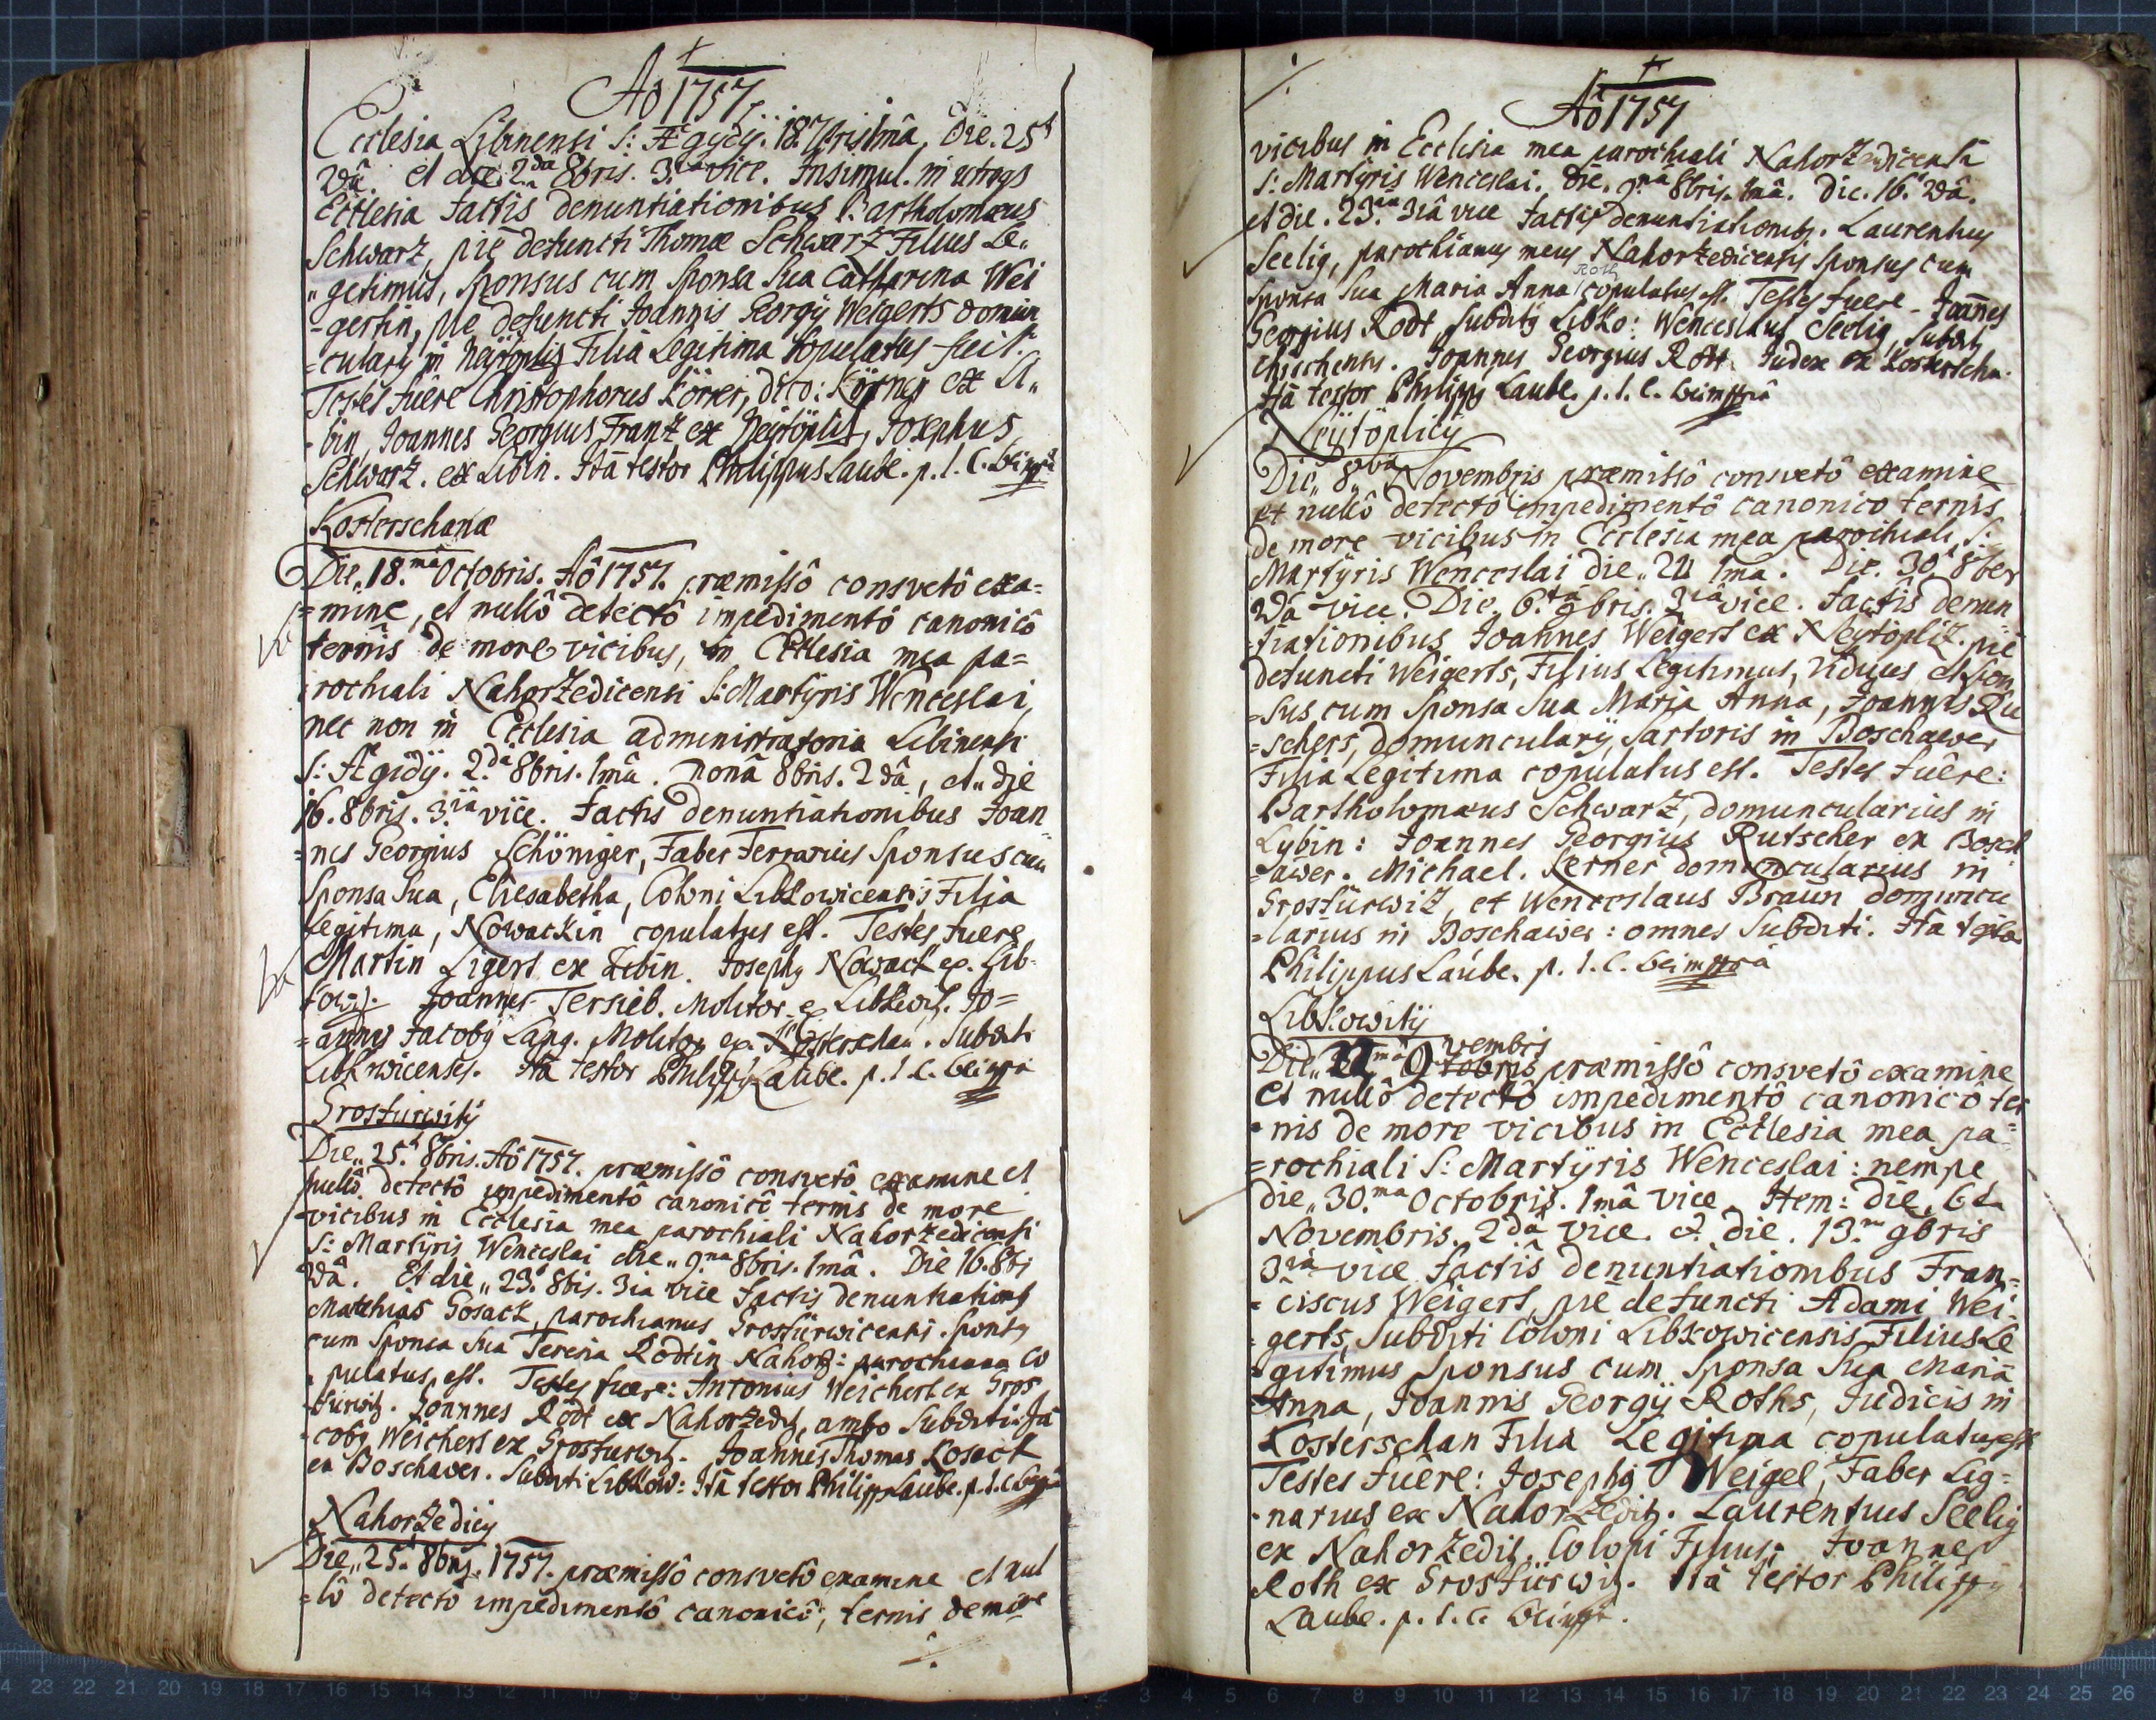 Aô 1757
Ecclesia Libinensi S: Ægydÿ. 18. 7bris 1mâ, Die. 25â
2dâ. et die. 2.da 8bris. 3.iâ vice. Insimul. in utraqs
Ecclesia factis denuntiationibus Bartholomæus
Schwartz, piè defuncti Thomæ Schwartz Filius Le„
„gitimus, Sponsus cum Sponsa Sua Catharina Wei
-gertin, piè defuncti Joannis Georgÿ Weigerts domun
=cularÿ in Neÿtöplitz Filia Legitima Copulatus fuit.
Testes fuêre Christophorus Körner, dico: Körner ex Li„
-bin, Joannes Georgius Frantz ex Neÿtöplitz, Josephus
Schwartz. ex Libin. Itâ testor Philippus Laube. p. l. C.
Kosterschanæ
Die. 18.mâ Octobris. Aô 1757. præmissô consvetô exa=
=mine, et nullô detectô impedimentô canonicô
ternis de more vicibus, in Ecclesia mea pa=
rochiali Nahorzedicensi S: Martÿris Wenceslai,
nec non in Ecclesia administratoria Libinensi
S: Ægidÿ. 2.dâ 8bris. 1mâ. nonâ 8bris. 2dâ, et„ die
16. 8bris. 3.iâ vice. factis denuntiationibus Joan
=nes Georgius Schöniger, Faber Ferrarius Sponsus cum
Sponsa Sua, Elisabetha, Coloni Libkowicensis Filia
Legitima, Nowackin copulatus est. Testes fuere
Martin Ligert ex Libin. Josephq Nowack ex. Lib-
kowz. Joannes Tersieb. Molitor ex Libkowitz. Jo=
=annes Jacobq Lang. Molitor ex. Kosterschan. Subditi
Libkowicenses. Itâ testor Philippq Laube. p. l. C.
Grosfürwitÿ
Die„ 25.â 8bris. Aô 1757. præmissô consvetô examine et
nullô detectô impedimentô canonicô ternis de more
vicibus in Ecclesia mea parochiali Nahorzedicensi
S: Martÿris Wenceslai die„ 9.na 8bris. 1mâ. Die 16. 8bris
2dâ. Et die„ 23.â 8bris. 3ia vice factis denuntiationq
Matthias Gosack, parochianus Grosfürwicensis. Sponsq
cum Sponsa Sua Teresia Rodtin Nahorz: parochiana Co
pulatus, est. Testes fuere: Antonius Weichert ex Gros
fürwitz. Joannes Rodt ex Nahorzeditz, ambo Subditi. Ja
cobq Weichert ex Grosfurwitz. Joannes Thomas Kosack
ex Boschawer. Subditi Libkow: Itâ testor Philippq Laube. p. l. C.
Nahorzedicÿ
Die„ 25.â 8bris. 1757. præmissô consvetô examine et nul
=lô detectô impedimentô canonicô, ternis de more
Aô 1757
vicibus in Ecclesia mea parochiali Nahorzedicensi
S: Martÿris Wenceslai. Die. 9.na 8bris. 1mâ. Die. 16.â 2dâ.
et die. 23.â 3iâ vice factis denuntiationibq. Laurentius
Seelig, parochianus meus Nahorzedicensis Sponsus cum
Roth
Sponsa Sua Maria Anna copulatus est. Testes fuere - Joannes
Georgius Rodt, Subditq Libko: Wenceslaus Seelig, Subditq
Chieschensis. Joannes Georgius Rott Judex ex Kosterscha.
Itâ testor Philippq Laube. p. l. C.
Neÿtöplicÿ
Die„ 8.va Novembris præmissô consvetô examine
et nullô detectô impedimentô canonico ternis
de more vicibus in Ecclesia mea parochiali S:
Martÿris Wenceslai die„ 23 1ma. Die. 30.â 8ber
2da vice. Die. 6.tâ 9bris. 3.iâ vice. factis denun
=tiationibus Joannes Weigert ex Neÿtöplitz. piè
defuncti Weigerts, Filius Legitimus, Viduus et spon
=sus cum Sponsa Sua Maria Anna, Joannis Ru
=schers, domuncularÿ, Sartoris in Boschawer
Filia Legitima copulatus est. Testes fuêre:
Bartholomæus Schwartz, domuncularius in
Lybin: Joannes Georgius Rutscher ex Bosch
=awer. Michael. Kerner domuncularius in
Grosfürwitz, et Wenceslaus Braun domuncu
=larius in Boschawer: omnes Subditi. Ita testor
Philippus Laube. p. l. C.
Libkowitÿ
Die„ 22mâ 9vembris præmissô consvetô examine
et nullô detectô impedimentô canonicô ter
nis de more vicibus in Ecclesia mea pa=
=rochiali S: Martÿris Wenceslai: nempe
die„ 30.ma Octobris. 1mâ vice. Item: die. 6ta
Novembris. 2dâ vice. et die. 13.â 9bris
3iâ vice factis denuntiationibus Fran=
=ciscus Weigert, piè defuncti Adami Wei-
gerts, Subditi Coloni Libkowicensis Filius Le
gitimus Sponsus cum Sponsa Sua Maria
Anna, Joannis Georgÿ Roths, Judicis in
Kosterschan Filia Legitima copulatus est
Testes fuêre: Josephq Weigel, Faber Lig=
-narius ex Nahorzeditz. Laurentius Seelig
ex Nahorzeditz. Coloni Filius. Joannes
Roth ex Grosfürwitz. Itâ testor Philippq
Laube. p. l. C.